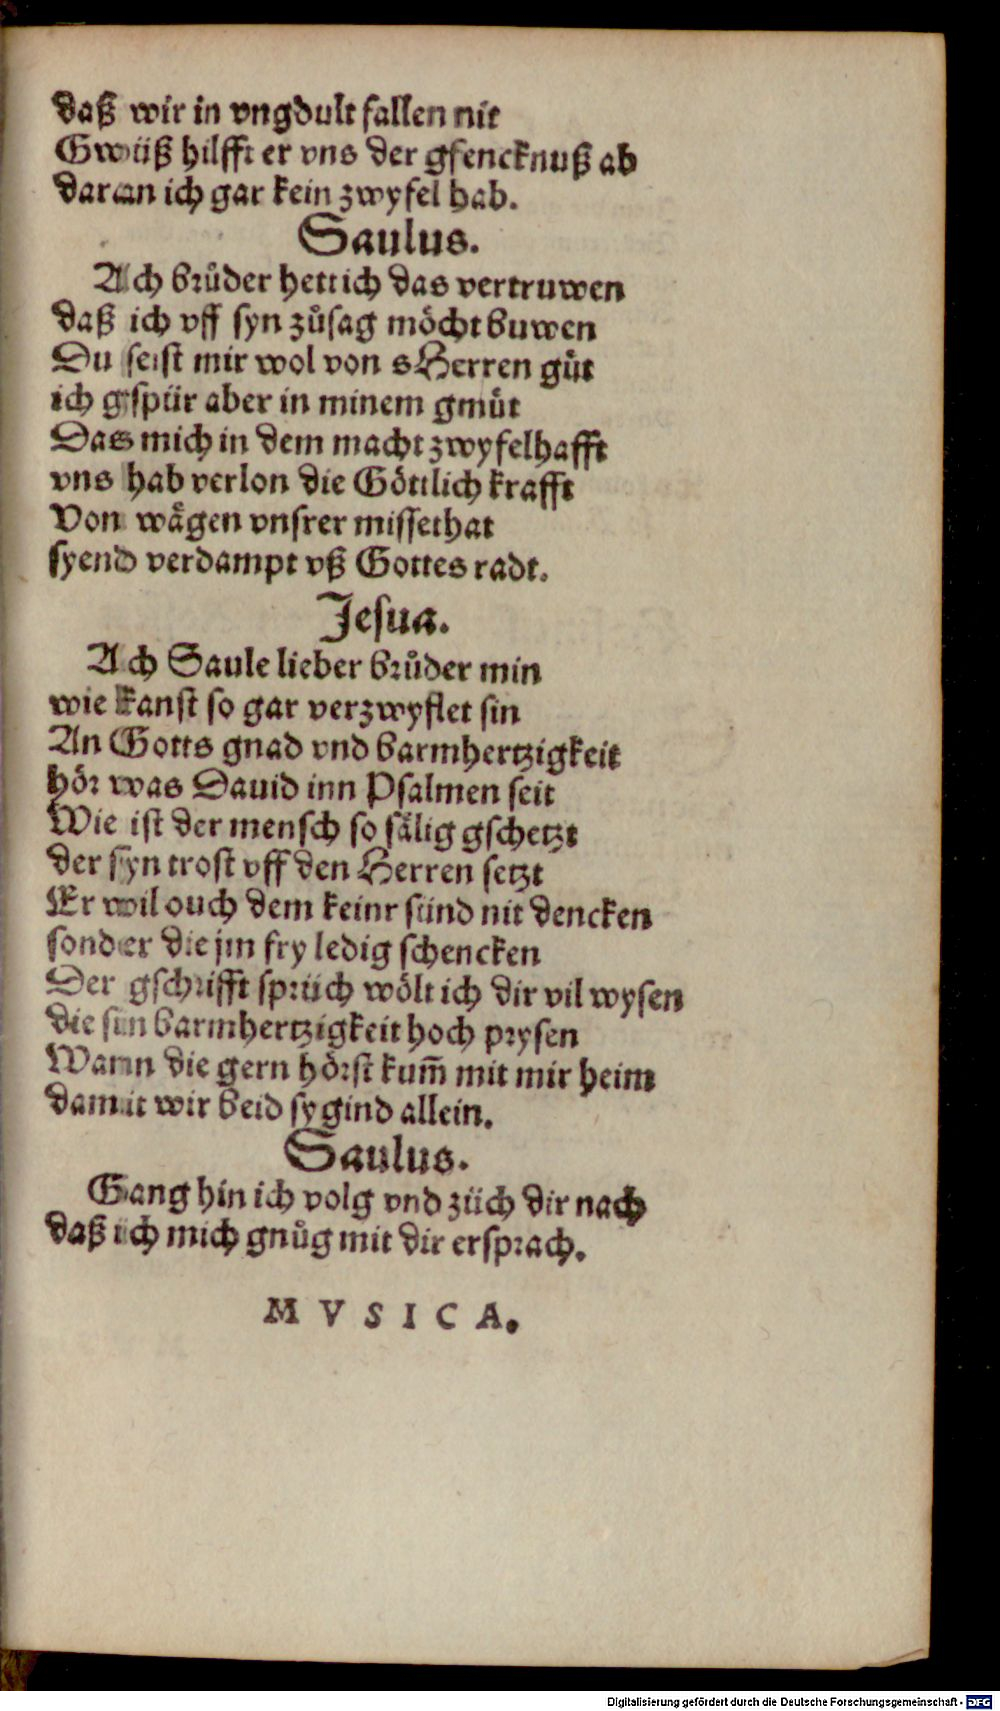 daß wir in vngdult fallen nit
Gwüß hilfft er vns der gfencknuß ab
daran ich gar kein zwyfel hab.
Saulus.
Ach brůder hett ich das vertruwen
daß ich vff syn zůsag möcht buwen
Du seist mir wol von s Herren güt
ich gspür aber in minem gmüt
Das mich in dem macht zwyfelhafft
vns hab verlon die Göttlich krafft
Von wägen vnsrer missethat
syend verdampt vß Gottes radt.
Jesua.
Ach Saule lieber brůder min
wie kanst so gar verzwyflet sin
An Gotts gnad vnd barmhertzigkeit
hör was Dauid inn Psalmen seit
Wie ist der mensch so sälig gschetzt
der syn trost vff den Herren setzt
Er wil ouch dem keinr sünd nit dencken
sonder die jm fry ledig schencken
Der gschrifft sprüch wölt ich dir vil wysen
die sin barmhertzigkeit hoch prysen
Wann die gern hörst kum̄ mit mir heim
damit wir beid sygind allein.
Saulus.
Gang hin ich volg vnd züch dir nach
daß ich mich gnůg mit dir ersprach.
MVSICA.
Digitalisierung gefördert durch die Deutsche Forschungsgemeinschaft - DFG